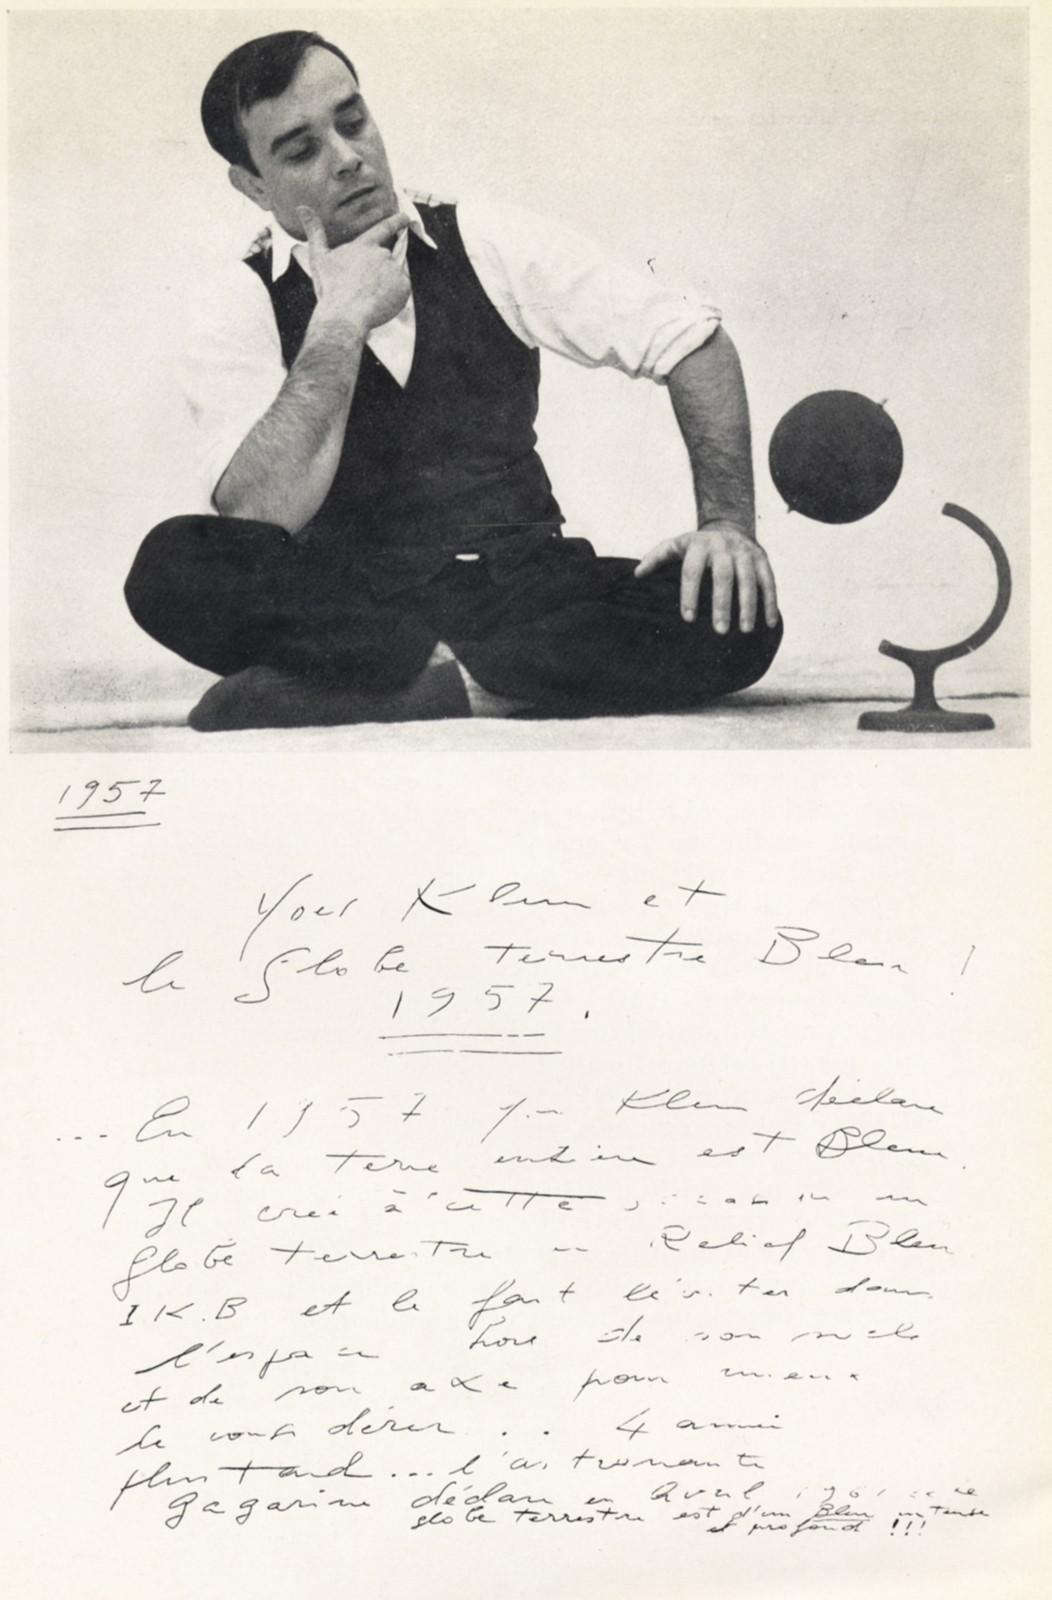 1957
Yves Klein et
le Globe terrestre Bleu !
1957.
... En 1957 Klein déclare
que la terre entière est Bleue.
Il crée à cette un
Globe terrestre en Relief Bleu
I K.B et le fait léviter dans
l'espace hors de son socle
et de son axe pour mieux
le considérer . . 4 années
plus tard... l'astronaute
Gagarine déclare en Avril 1961 que le
globe terrestre est d'un Bleu intense
et profond !!!